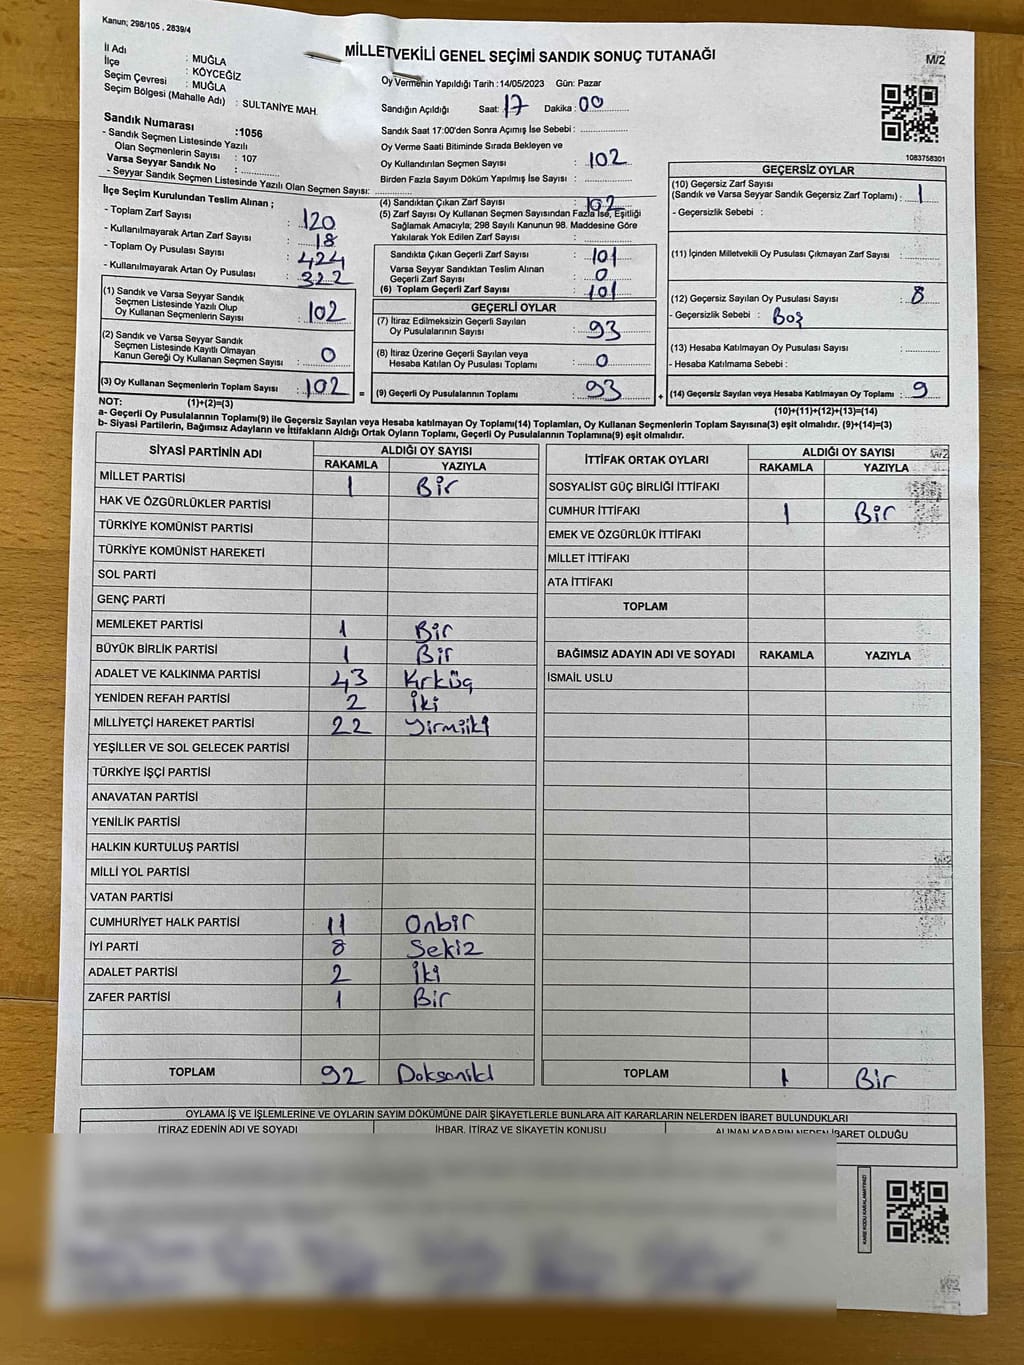 Kanun; 298/105 , 2839/4
MİLLETVEKİLİ GENEL SEÇİMİ SANDIK SONUÇ TUTANAĞI
M/2
İl Adı : MUĞLA
İlçe : KÖYCEĞİZ
Seçim Çevresi : MUĞLA
Seçim Bölgesi (Mahalle Adı) : SULTANİYE MAH.
Sandık Numarası :1056
- Sandık Seçmen Listesinde Yazılı
Olan Seçmenlerin Sayısı : 107
Varsa Seyyar Sandık No :
- Seyyar Sandık Seçmen Listesinde Yazılı Olan Seçmen Sayısı:
Oy Vermenin Yapıldığı Tarih :14/05/2023 Gün: Pazar
Sandığın Açıldığı Saat: 17 Dakika : 00
Sandık Saat 17:00'den Sonra Açımış İse Sebebi :
Oy Verme Saati Bitiminde Sırada Bekleyen ve
Oy Kullandırılan Seçmen Sayısı : 102
Birden Fazla Sayım Döküm Yapılmış İse Sayısı :
1083758301
İlçe Seçim Kurulundan Teslim Alınan ;
- Toplam Zarf Sayısı : 120
- Kullanılmayarak Artan Zarf Sayısı : 18
- Toplam Oy Pusulası Sayısı : 424
- Kullanılmayarak Artan Oy Pusulası : 322
(1) Sandık ve Varsa Seyyar Sandık
Seçmen Listesinde Yazılı Olup
Oy Kullanan Seçmenlerin Sayısı : 102
(2) Sandık ve Varsa Seyyar Sandık
Seçmen Listesinde Kayıtlı Olmayan
Kanun Gereği Oy Kullanan Seçmen Sayısı : 0
(3) Oy Kullanan Seçmenlerin Toplam Sayısı : 102 =
(1)+(2)=(3)
(4) Sandıktan Çıkan Zarf Sayısı : 102
(5) Zarf Sayısı Oy Kullanan Seçmen Sayısından Fazla İse, Eşitliği
Sağlamak Amacıyla; 298 Sayılı Kanunun 98. Maddesine Göre
Yakılarak Yok Edilen Zarf Sayısı :
Sandıkta Çıkan Geçerli Zarf Sayısı : 101
Varsa Seyyar Sandıktan Teslim Alınan
Geçerli Zarf Sayısı : 0
(6) Toplam Geçerli Zarf Sayısı : 101
GEÇERLİ OYLAR
(7) İtiraz Edilmeksizin Geçerli Sayılan
Oy Pusulalarının Sayısı : 93
(8) İtiraz Üzerine Geçerli Sayılan veya
Hesaba Katılan Oy Pusulası Toplamı : 0
(9) Geçerli Oy Pusulalarının Toplamı : 93 +
GEÇERSİZ OYLAR
(10) Geçersiz Zarf Sayısı
(Sandık ve Varsa Seyyar Sandık Geçersiz Zarf Toplamı) : 1
- Geçersizlik Sebebi :
(11) İçinden Milletvekili Oy Pusulası Çıkmayan Zarf Sayısı :
(12) Geçersiz Sayılan Oy Pusulası Sayısı : 8
- Geçersizlik Sebebi : Boş
(13) Hesaba Katılmayan Oy Pusulası Sayısı :
- Hesaba Katılmama Sebebi :
(14) Geçersiz Sayılan veya Hesaba Katılmayan Oy Toplamı : 9
(10)+(11)+(12)+(13)=(14)
NOT:
a- Geçerli Oy Pusulalarının Toplamı(9) ile Geçersiz Sayılan veya Hesaba katılmayan Oy Toplamı(14) Toplamları, Oy Kullanan Seçmenlerin Toplam Sayısına(3) eşit olmalıdır. (9)+(14)=(3)
b- Siyasi Partilerin, Bağımsız Adayların ve İttifakların Aldığı Ortak Oyların Toplamı, Geçerli Oy Pusulalarının Toplamına(9) eşit olmalıdır.
SİYASİ PARTİNİN ADI ALDIĞI OY SAYISI
RAKAMLA YAZIYLA
MİLLET PARTİSİ 1 Bir
HAK VE ÖZGÜRLÜKLER PARTİSİ
TÜRKİYE KOMÜNİST PARTİSİ
TÜRKİYE KOMÜNİST HAREKETİ
SOL PARTİ
GENÇ PARTİ
MEMLEKET PARTİSİ 1 Bir
BÜYÜK BİRLİK PARTİSİ 1 Bir
ADALET VE KALKINMA PARTİSİ 43 Kırküç
YENİDEN REFAH PARTİSİ 2 İki
MİLLİYETÇİ HAREKET PARTİSİ 22 Yirmiiki
YEŞİLLER VE SOL GELECEK PARTİSİ
TÜRKİYE İŞÇİ PARTİSİ
ANAVATAN PARTİSİ
YENİLİK PARTİSİ
HALKIN KURTULUŞ PARTİSİ
MİLLİ YOL PARTİSİ
VATAN PARTİSİ
CUMHURİYET HALK PARTİSİ 11 Onbir
İYİ PARTİ 8 Sekiz
ADALET PARTİSİ 2 İki
ZAFER PARTİSİ 1 Bir
TOPLAM 92 Doksaniki
İTTİFAK ORTAK OYLARI ALDIĞI OY SAYISI
RAKAMLA YAZIYLA
SOSYALİST GÜÇ BİRLİĞİ İTTİFAKI
CUMHUR İTTİFAKI 1 Bir
EMEK VE ÖZGÜRLÜK İTTİFAKI
MİLLET İTTİFAKI
ATA İTTİFAKI
TOPLAM
BAĞIMSIZ ADAYIN ADI VE SOYADI RAKAMLA YAZIYLA
İSMAİL USLU
TOPLAM 1 Bir
OYLAMA İŞ VE İŞLEMLERİNE VE OYLARIN SAYIM DÖKÜMÜNE DAİR ŞİKAYETLERLE BUNLARA AİT KARARLARIN NELERDEN İBARET BULUNDUKLARI
İTİRAZ EDENİN ADI VE SOYADI İHBAR, İTİRAZ VE ŞİKAYETİN KONUSU ALINAN KARARIN NEDEN İBARET OLDUĞU
KARE KODU KARALAMAYINIZ!